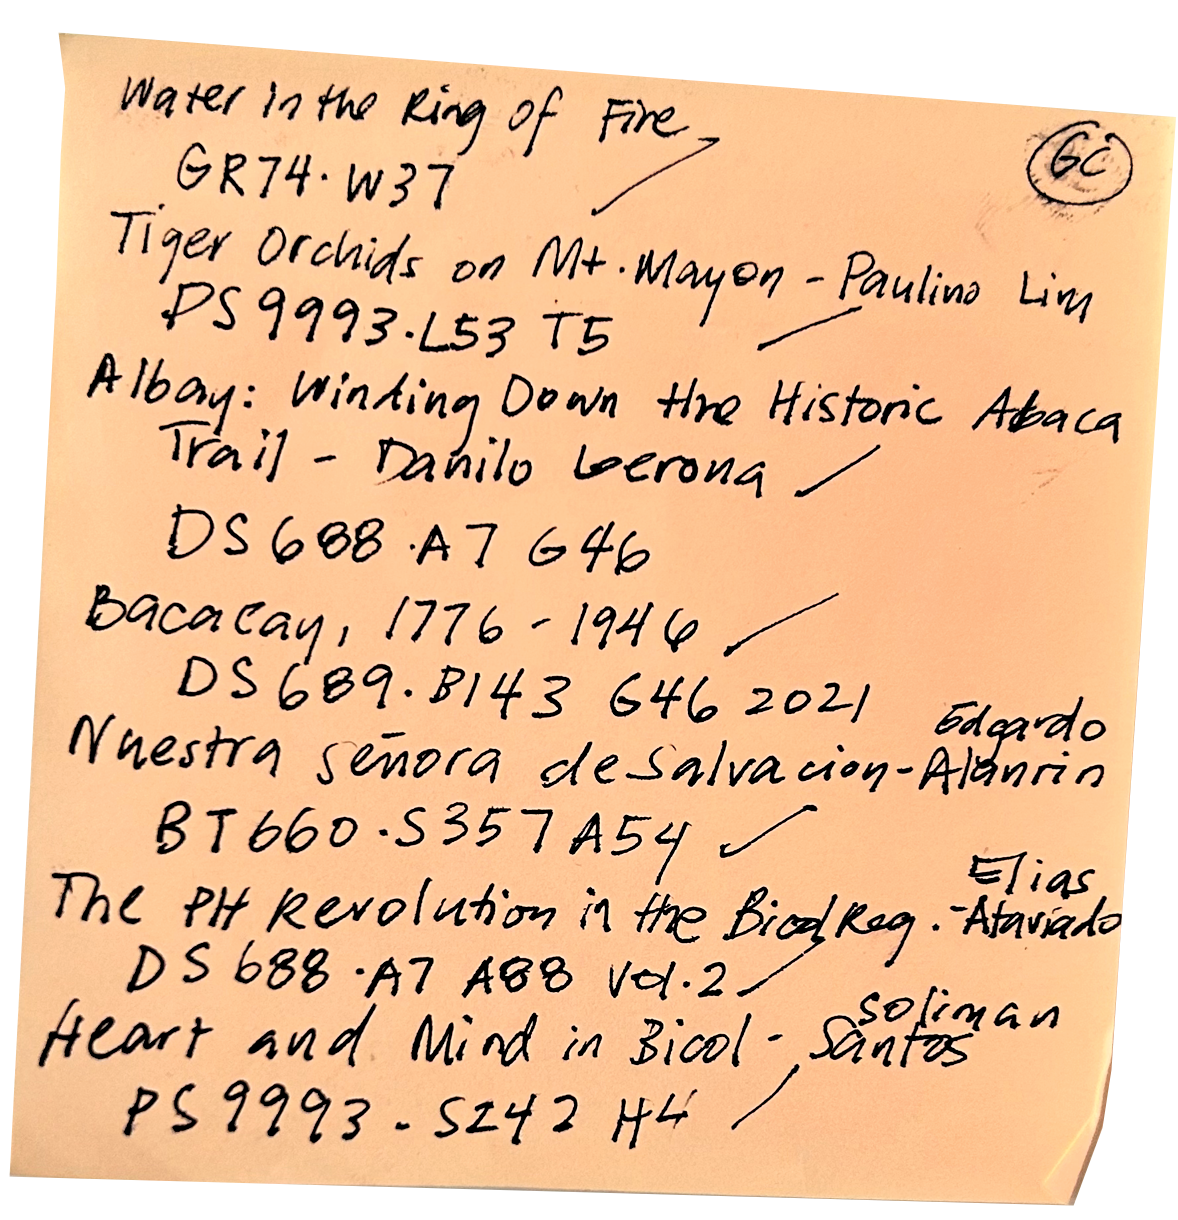 Water in the Ring of Fire
GC
GR74.W37
Tiger Orchids on Mt. Mayon - Paulino Lim
PS9993.L53 T5
Albay: Winding Down the Historic Abaca
Trail - Danilo Gerona
DS688.A7 G46
Bacacay, 1776-1946
DS689.B143 G46 2021
Nuestra señora de Salvacion - Edgardo
Alanrin
BT660.S357A54
The PH Revolution in the Bicol Reg. - Elias
Ataviado
DS688.A7 A88 Vol.2
Heart and Mind in Bicol - Soliman
Santos
PS9993.S242 H4